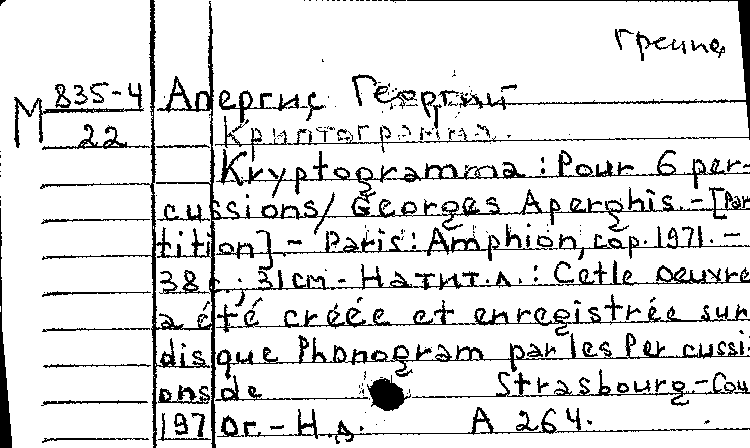 Греция
М 835-4 Апергис Георгий
22 Криптограмма.
Kryptogramma : Pour 6 per-
cussions/ Georges Aperghis. - [Par
tition]. - Paris : Amphion, cop. 1971. -
38 с.; 31 cm. - На тит.л. : Cette oeuvre
a été créée et enregistrée sur
disque Phonogram par les Percussi-
ons de Strasbourg-Cou
197 Or. - Н.д. A 264.